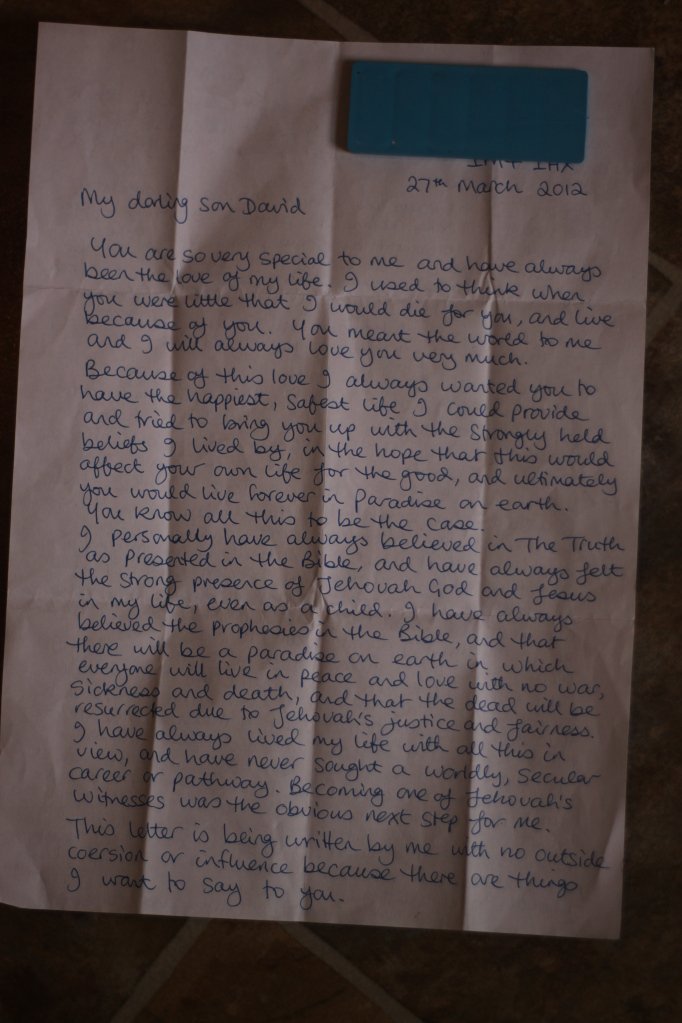 27th March 2012
My darling son David
You are so very special to me and have always
been the love of my life. I used to think when
you were little that I would die for you, and live
because of you. You meant the world to me
and I will always love you very much.
Because of this love I always wanted you to
have the happiest, safest life I could provide
and tried to bring you up with the strongly held
beliefs I lived by, in the hope that this would
affect your own life for the good, and ultimately
you would live forever in paradise on earth.
You know all this to be the case.
I personally have always believed in The Truth
as presented in the Bible, and have always felt
the strong presence of Jehovah God and Jesus
in my life, even as a child. I have always
believed the prophesies in the Bible, and that
there will be a paradise on earth in which
everyone will live in peace and love with no war,
sickness and death, and that the dead will be
resurrected due to Jehovah's justice and fairness.
I have always lived my life with all this in
view, and have never sought a worldly, secular
career or pathway. Becoming one of Jehovah's
witnesses was the obvious next step for me.
This letter is being written by me with no outside
coersion or influence because there are things
I want to say to you.